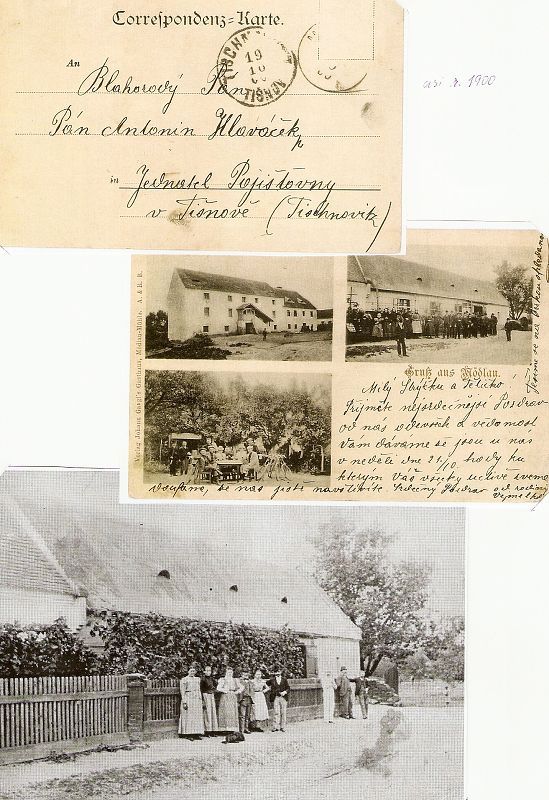 Correspondenz-Karte.
An
Blahorodý Pan
Pán Antonin Hlaváček
in Jednatel Pojišťovny
v Tišnově (Tischnovitz)
TISCHN
19
10
TIŠNOV
asi r. 1900
Verlag Johann Gasthaus, Medlau-Mühle. A. & B. B.
Gruß aus Mödlau.
Milý Strýčku a Tetičko!
Přijměte nejsrdečnější Pozdrav
od nás všech a vědomost
Vám dáváme že jsou u nás
v neděli dne 21/10. hody ku
kterým Vás všecky uctivě zveme
doufáme, že nás jistě navštívíte. Srdečný Pozdrav od rodiny
Těšíme se na